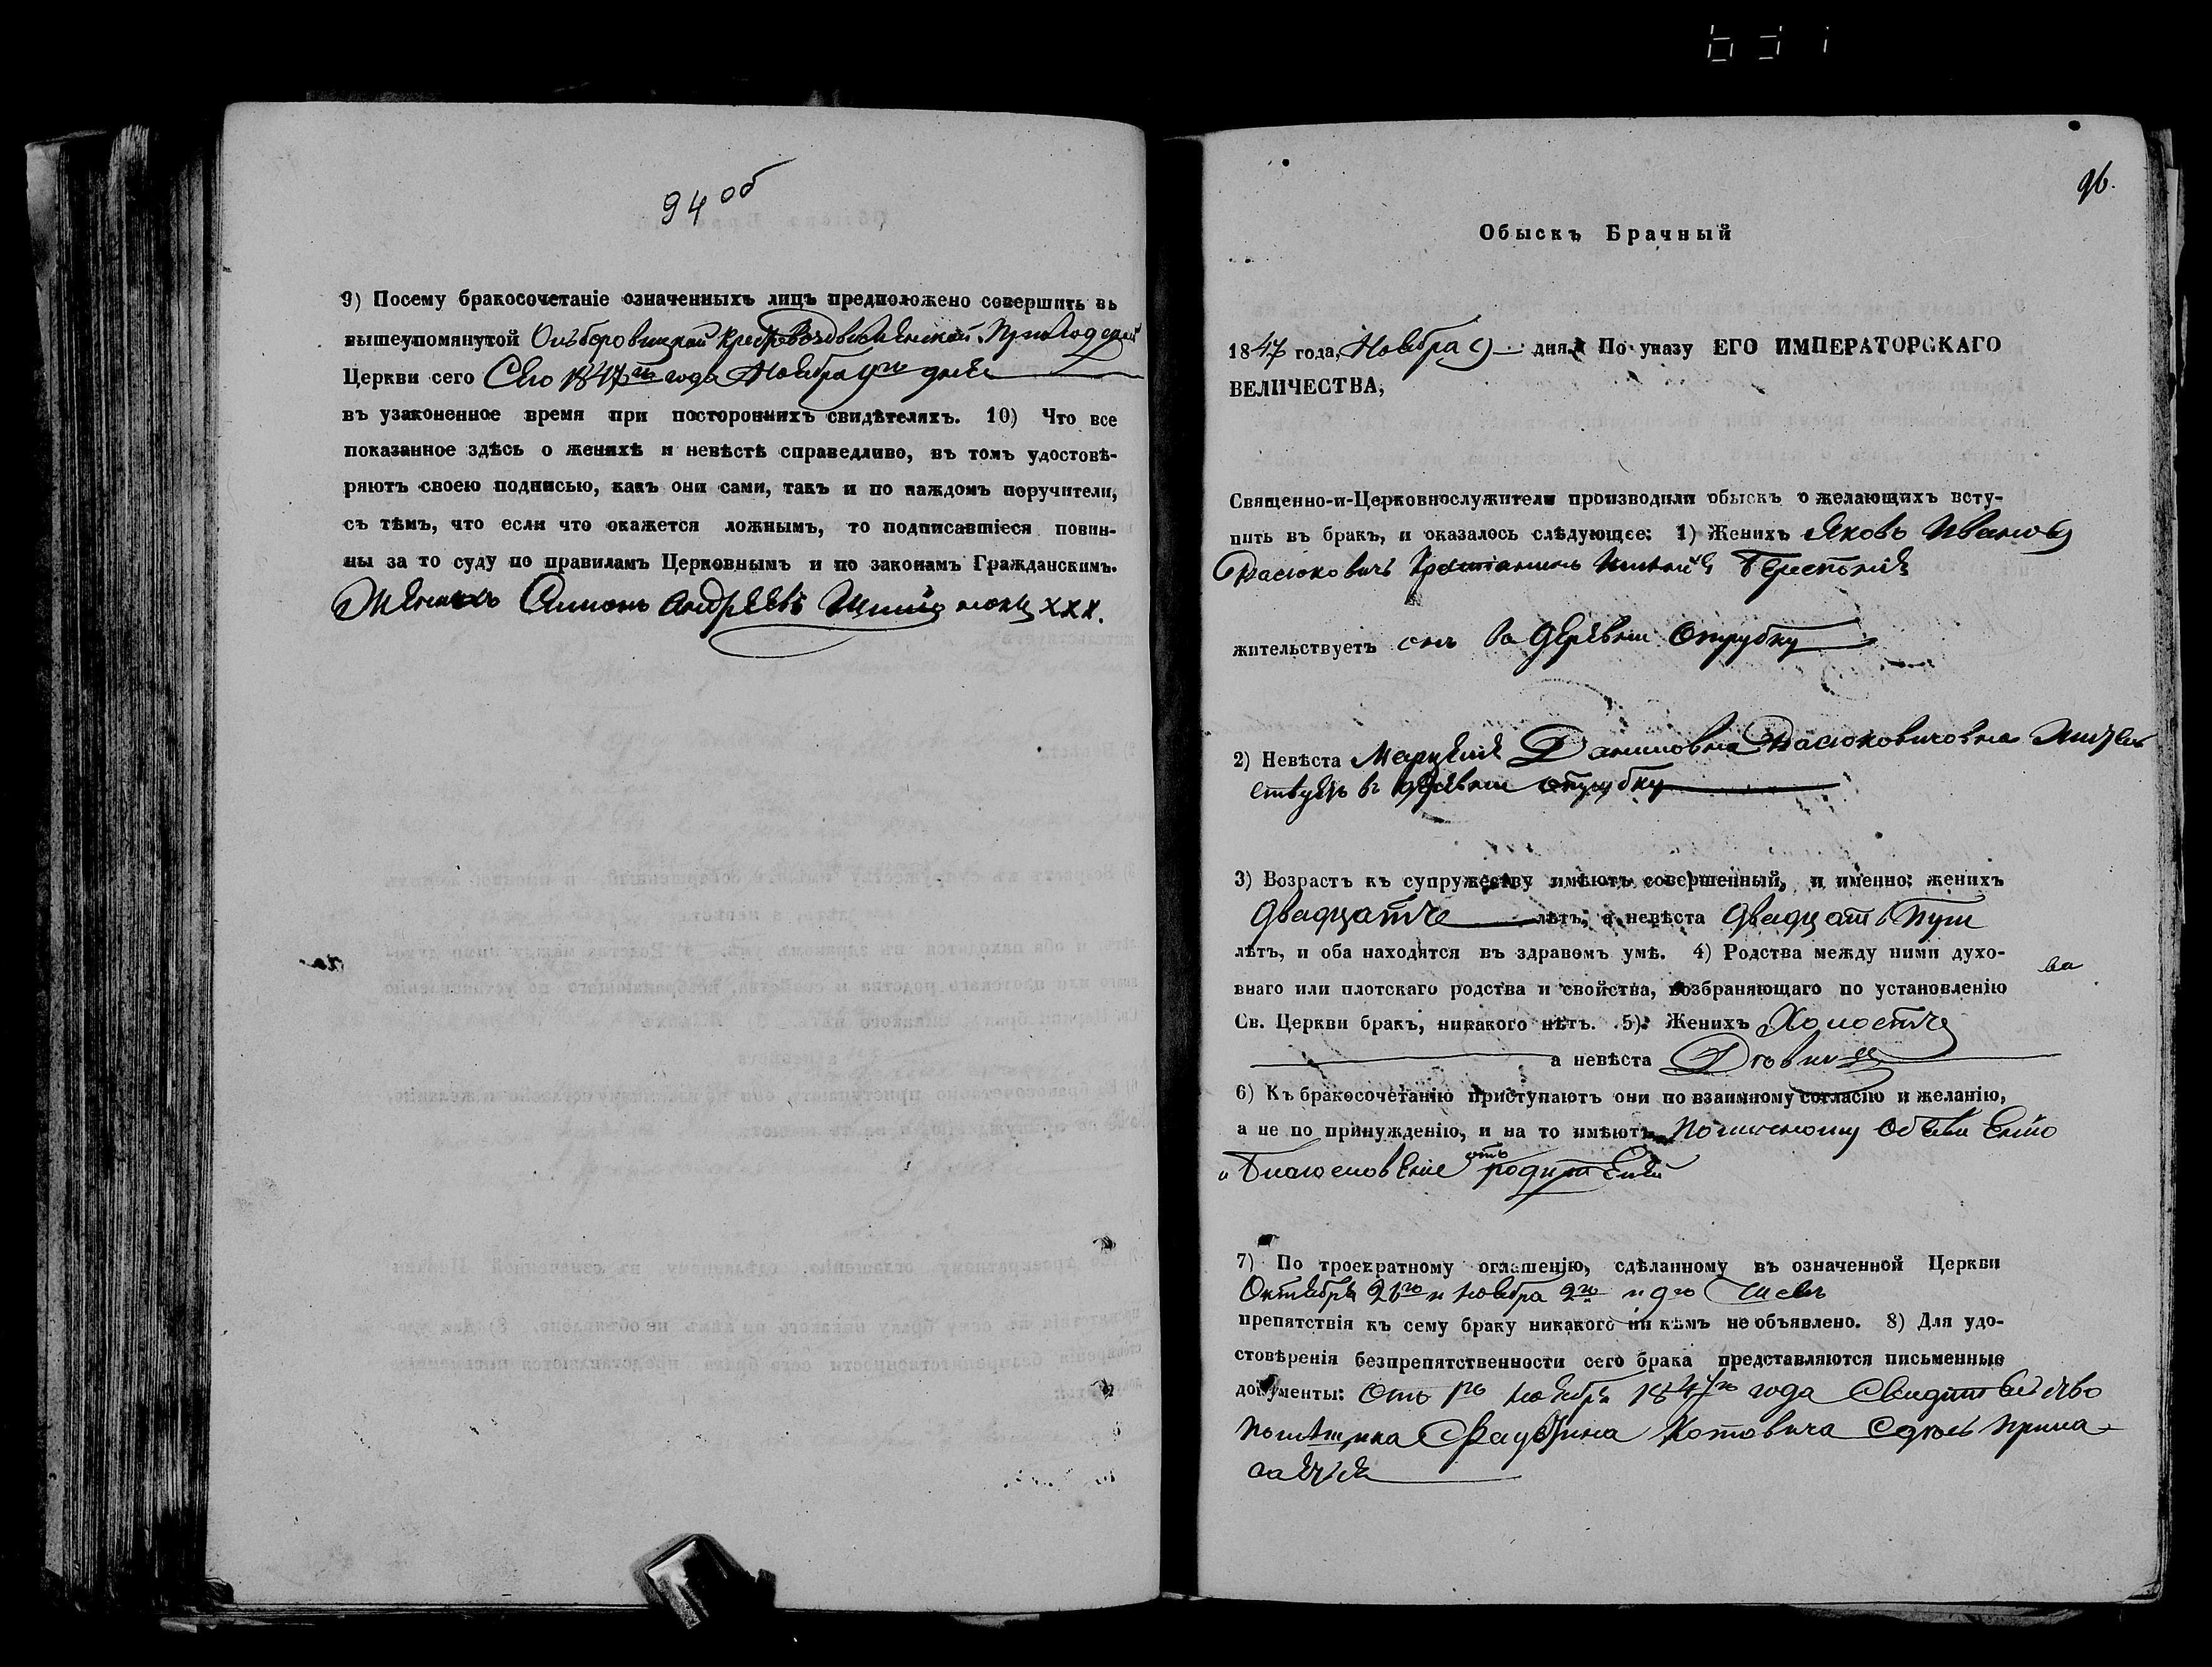 94 об
9) Посему бракосочетаніе означенныхъ лицъ предположено совершить въ
вышеупомянутой Кресто
Церкви сего Сего 1847го года Ноября 9го дня
въ узаконенное время при постороннихъ свидѣтеляхъ. 10) Что все
показанное здѣсь о женихѣ и невѣстѣ справедливо, въ томъ удостовѣ-
ряютъ своею подписью, какъ они сами, такъ и по каждомъ поручители,
съ тѣмъ, что если что окажется ложнымъ, то подписавшіеся повин-
ны за то суду по правиламъ Церковнымъ и по законамъ Гражданскимъ.
Женихъ Симонъ Андреевъ ххх.
96.
Обыскъ Брачный
1847 года, Ноября 9 дня. По указу ЕГО ИМПЕРАТОРСКАГО
ВЕЛИЧЕСТВА,
Священно-и-Церковнослужители производили обыскъ о желающихъ всту-
пить въ бракъ, и оказалось слѣдующее: 1) Женихъ Яковъ Ивановъ
Васюковичъ имѣнія
жительствуетъ онъ въ деревни Отрубку
2) Невѣста Даниловна Васюковичовна жител
ствуетъ в деревни отрубку
3) Возрастъ къ супружеству имѣютъ совершенный, и именно: женихъ
двадцать лѣтъ, а невѣста двадцать
лѣтъ, и оба находятся въ здравомъ умѣ. 4) Родства между ними духо-
ва
внаго или плотскаго родства и свойства, возбраняющаго по установленію
Св. Церкви бракъ, никакого нѣтъ. 5) Женихъ Холостъ
а невѣста Дѣвица
6) Къ бракосочетанію приступаютъ они по взаимному согласію и желанію,
а не по принужденію, и на то имѣютъ по
и Благословение отъ родителей
7) По троекратному оглашенію, сдѣланному въ означенной Церкви
Октября 26го и ноября 2го и 9го Чиселъ
препятствія къ сему браку никакого ни кѣмъ не объявлено. 8) Для удо-
стовѣренія безпрепятственности сего брака представляются письменные
документы: отъ 1го ноября 1847го года Свидѣтельство
помѣщика Котовича Сдѣсь прила-
гается